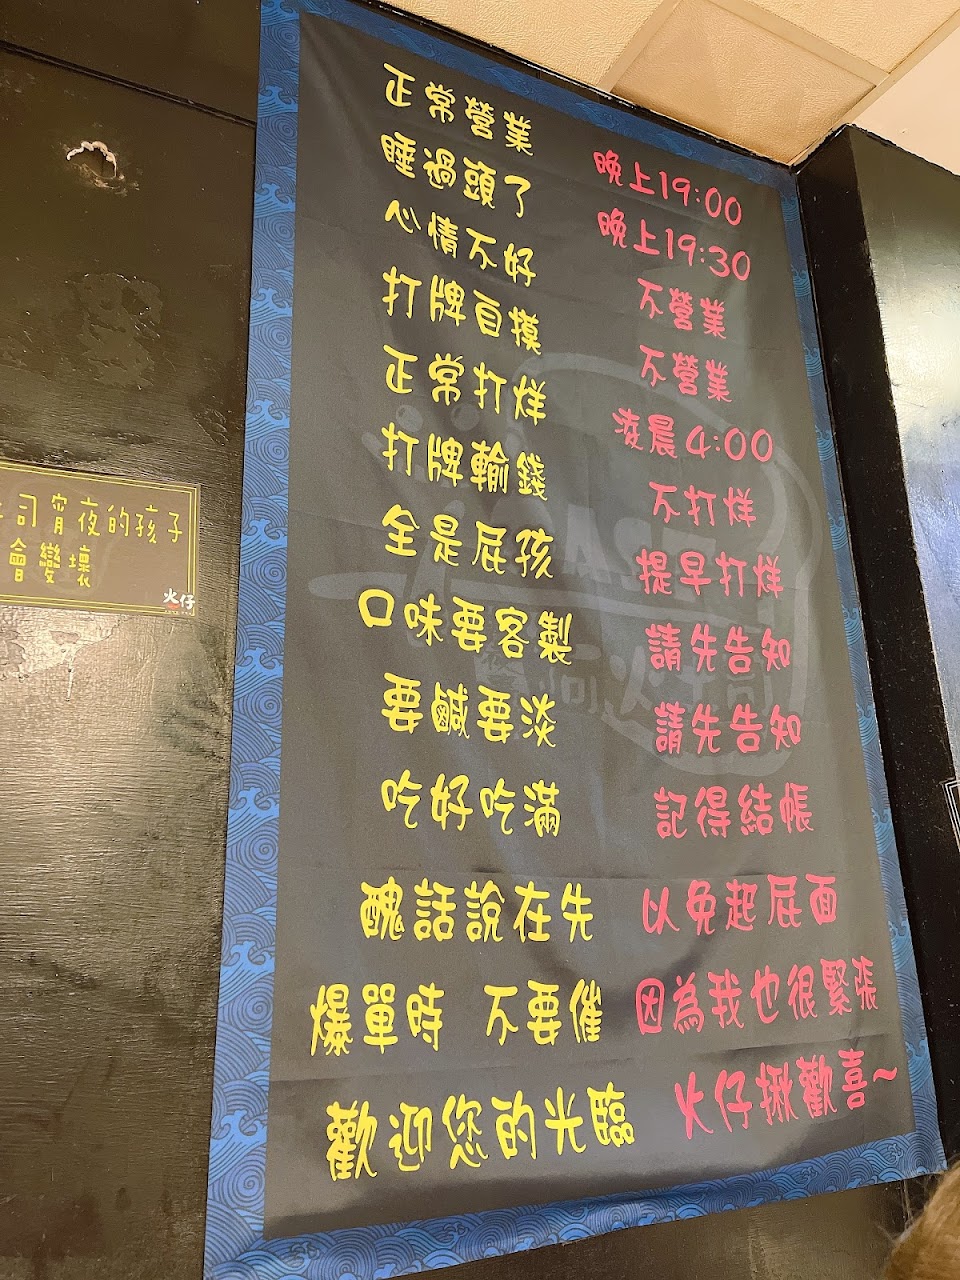 正常營業 晚上19:00
睡過頭了 晚上19:30
心情不好 不營業
打牌自摸 不營業
正常打烊 凌晨4:00
打牌輸錢 不打烊
全是屁孩 提早打烊
口味要客製 請先告知
要鹹要淡 請先告知
吃好吃滿 記得結帳
醜話說在先 以免起屁面
爆單時 不要催 因為我也很緊張
歡迎您的光臨 火仔揪歡喜~
司宵夜的孩子
會變壞
火仔